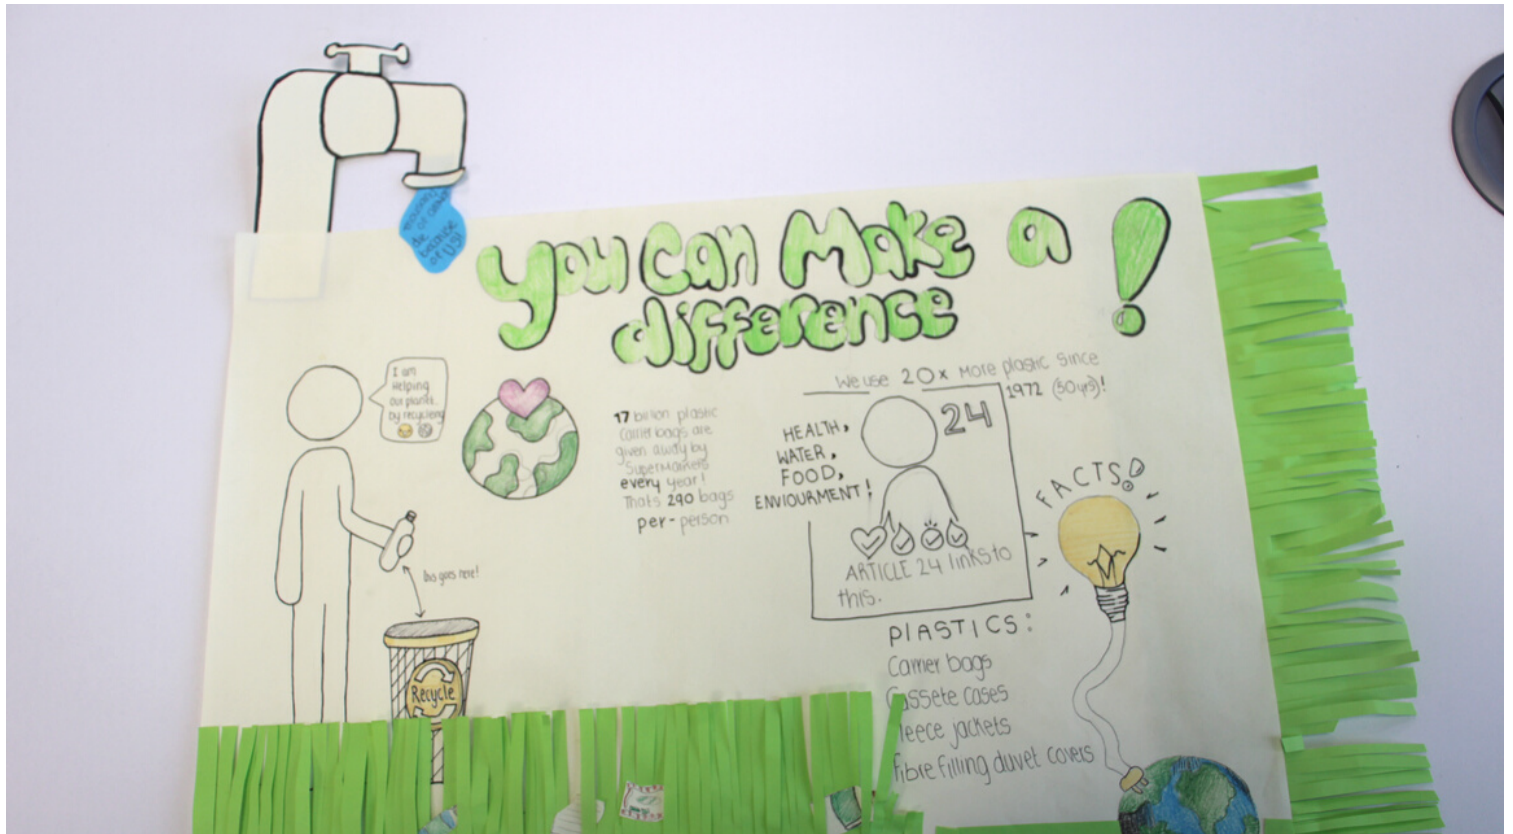 die
because
of US!
you Can Make a !
difference
I am
Helping
our planet.
by recycleing
17 billion plastic
carrier bags are
given away by
Supermarkets
every year!
Thats 290 bags
per-person
We use 20x More plastic Since
1972 (50yrs)!
24
HEALTH,
WATER,
FOOD,
ENVIOURMENT!
ARTICLE 24 links to
this.
FACTS!
this goes here!
Recycle
PlASTICS:
Carrier bags
Cassete cases
fleece jackets
Fibre filling duvet covers